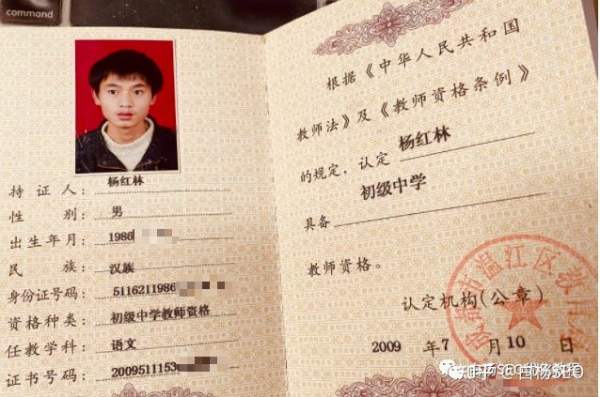 command
持证人： 杨红林
性别： 男
出生年月： 1986
民族： 汉族
身份证号码： 5116211986
资格种类： 初级中学教师资格
任教学科： 语文
证书号码： 2009511153
根据《中华人民共和国
教师法》及《教师资格条例》
的规定，认定 杨红林
具备 初级中学
教师资格。
市温江区教
认定机构(公章)
2009 年 7 月 10 日
知乎 @白杨SEO